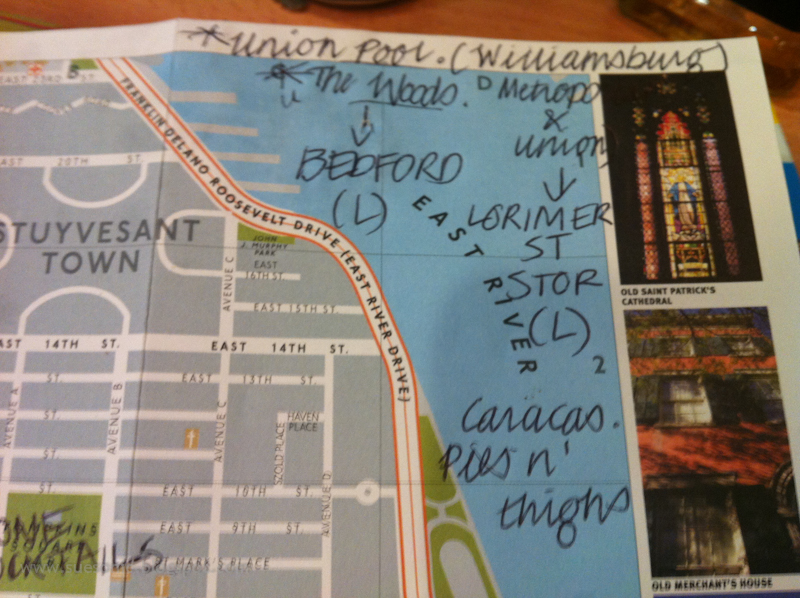 *Union Pool. (Williamsburg)
* The Woods.
Metropo
&
Union
BEDFORD
(L)
LORIMER
ST
STOR
(L)
2
Caracas.
Pies n'
thighs
EAST 23RD ST.
20TH ST.
STUYVESANT
TOWN
FRANKLIN DELANO ROOSEVELT DRIVE (EAST RIVER DRIVE)
EAST RIVER
JOHN
J. MURPHY
PARK
EAST
16TH ST.
AVENUE C
EAST 15TH ST.
AST 14TH ST.
EAST 14TH ST.
ST.
EAST 13TH ST.
AVENUE A
AVENUE B
AVENUE C
ST.
HAVEN
PLACE
SZOLD PLACE
AVENUE D
ST.
ST.
EAST 10TH ST.
EAST 9TH ST.
ST MARK'S PLACE
OLD SAINT PATRICK'S
CATHEDRAL
OLD MERCHANT'S HOUSE